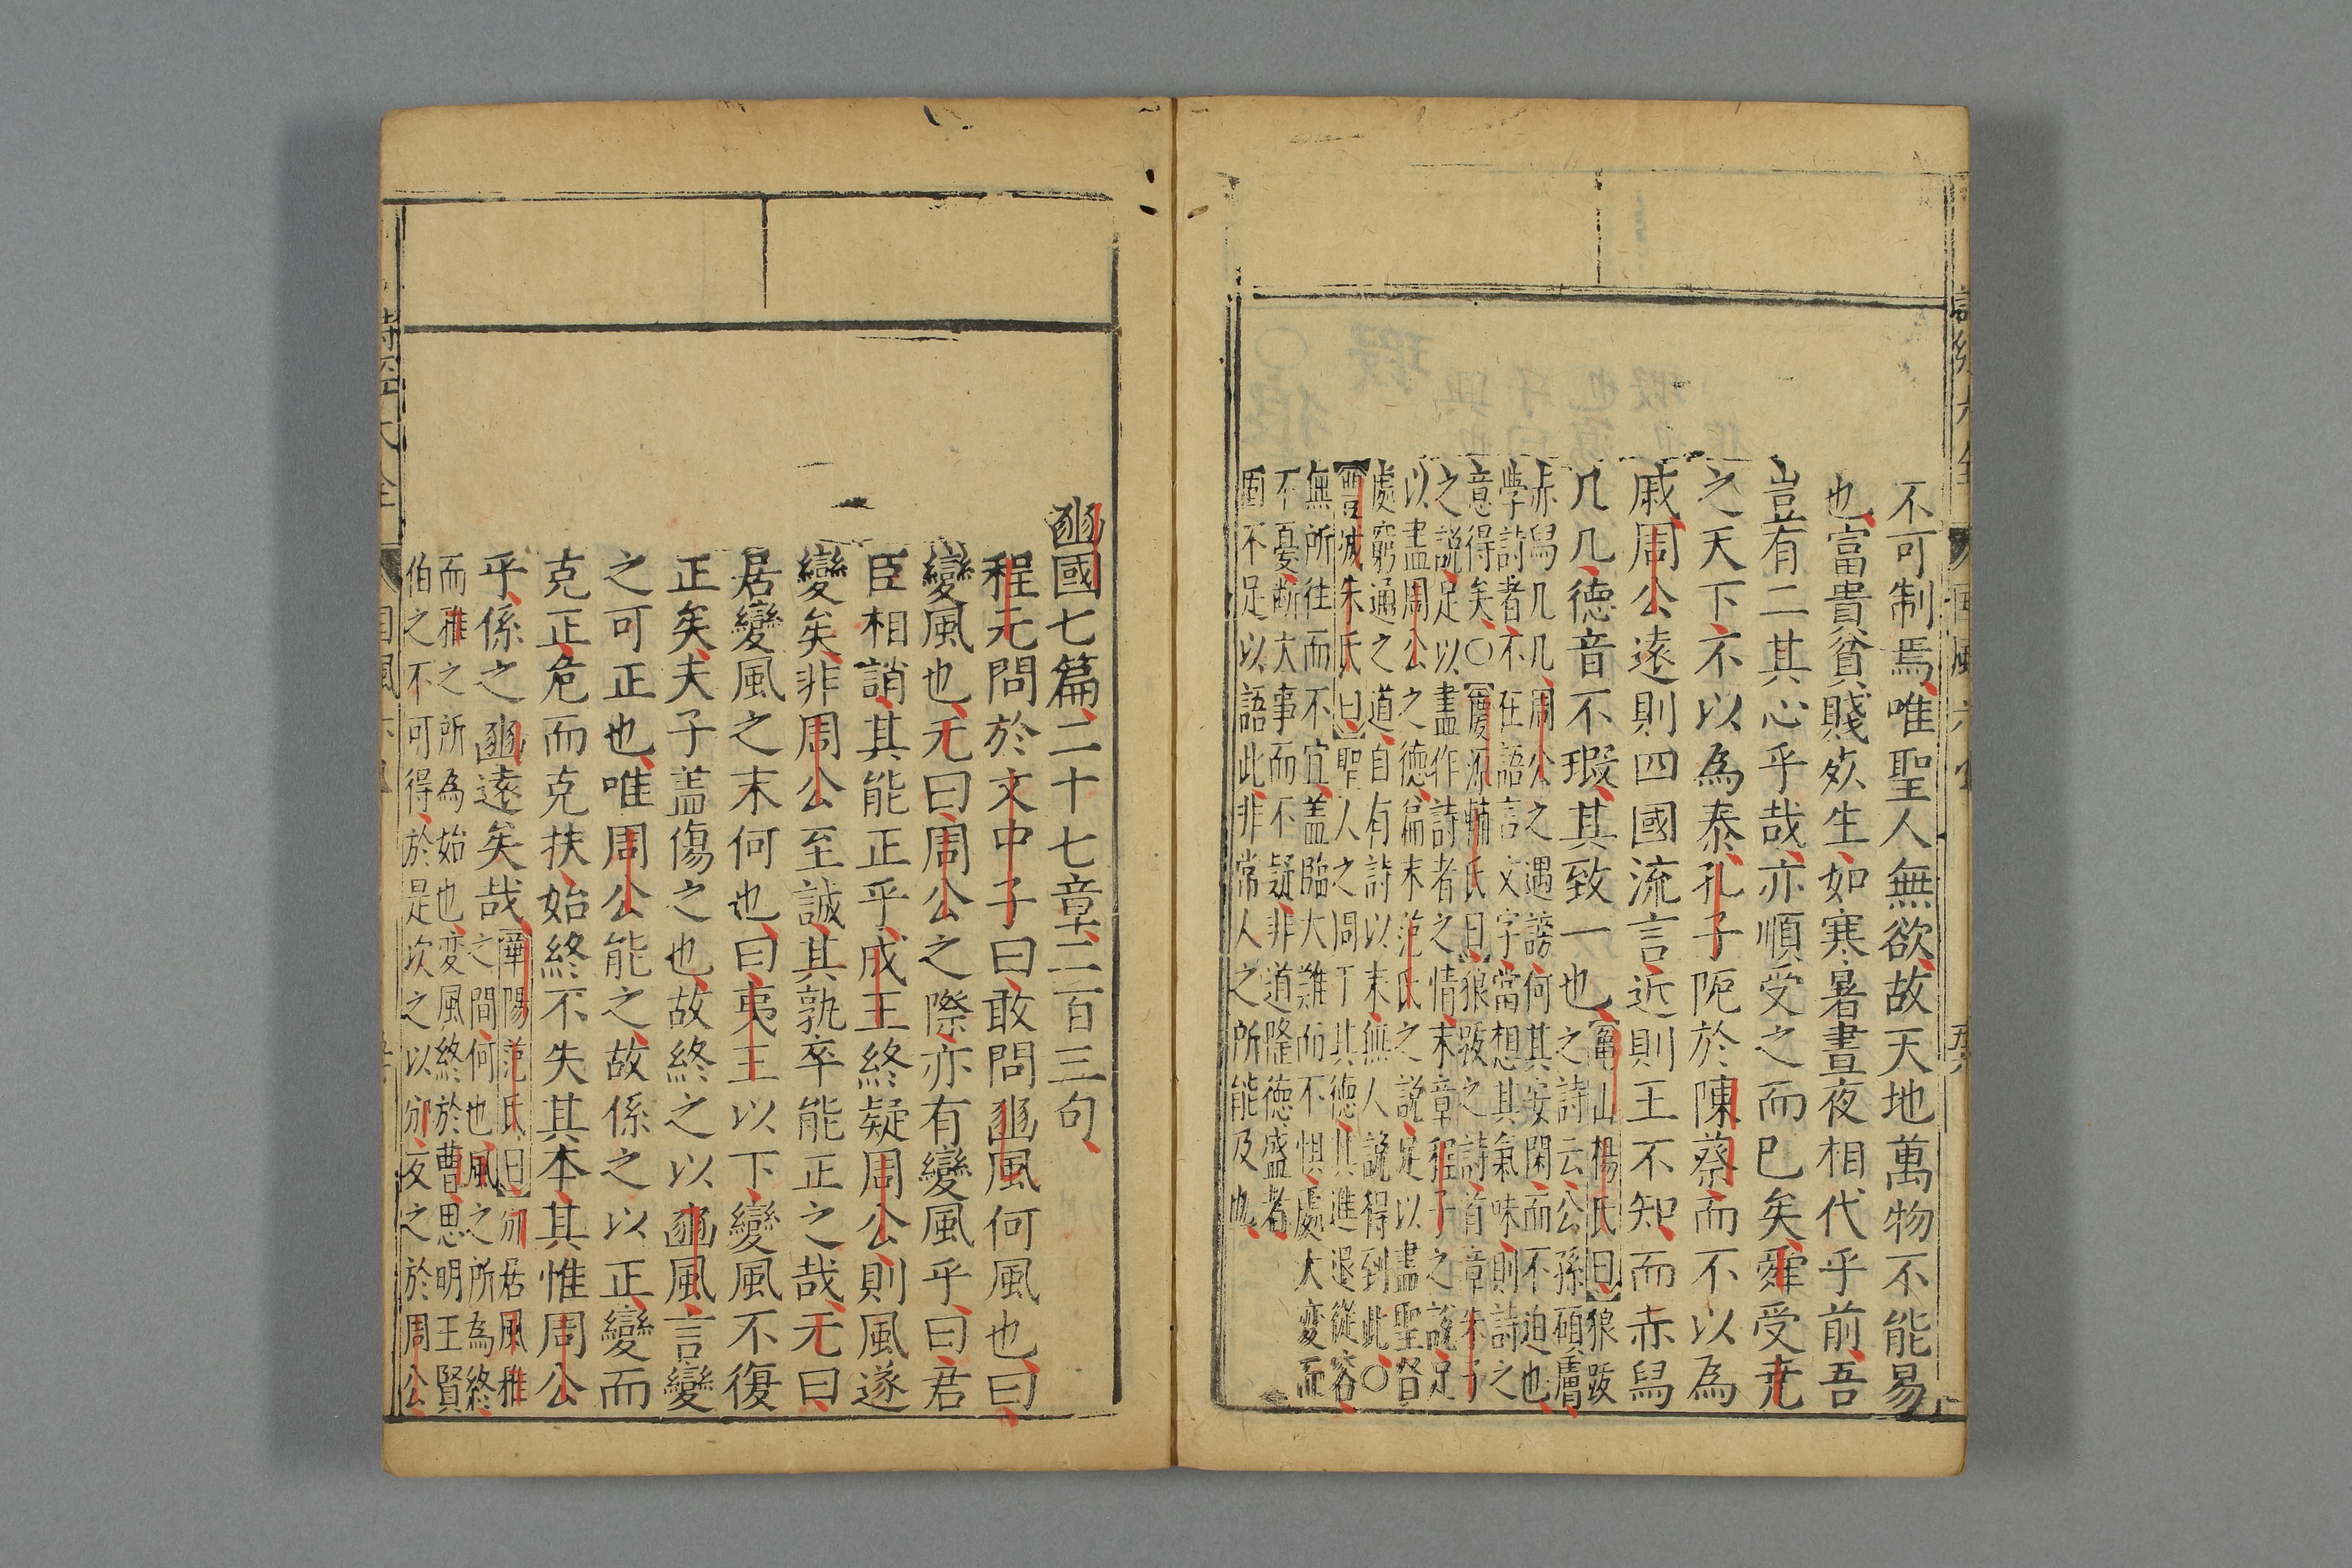 不可制焉唯聖人無欲故天地萬物不能易
也富貴貧賤死生如寒暑晝夜相代乎前吾
豈有二其心乎哉亦順受之而已矣舜受尭
之天下不以為泰孔子阨於陳蔡而不以為
戚周公遠則四國流言近則王不知而赤舄
几几德音不瑕其致一也
龜山楊氏曰狼跋
之詩云公孫碩膚
赤舄几几周公之遇謗何其安閑而不迫也
學詩者不在語言文字當想其氣味則詩之
意得矣○慶源輔氏曰狼跋之詩首章朱子
之說足以盡作詩者之情末章程子之說足
以盡周公之德篇末范氏之說足以盡聖賢
處窮通之道自有詩以來無人說得到此○
豐城朱氏曰聖人之周于其德其進退從容
無所往而不宜蓋臨大難而不懼處大変而
不憂斷大事而不疑非道隆德盛者
固不足以語此非常人之所能及也
豳國七篇二十七章二百三句
程元問於文中子曰敢問豳風何風也曰
變風也元曰周公之際亦有變風乎曰君
臣相誚其能正乎成王終疑周公則風遂
變矣非周公至誠其孰卒能正之哉元曰
居變風之末何也曰夷王以下變風不復
正矣夫子盖傷之也故終之以豳風言變
之可正也唯周公能之故係之以正變而
克正危而克扶始終不失其本其惟周公
乎係之豳遠矣哉
華陽范氏曰豳居風雅
之間何也風之所為終
而雅之所為始也変風終於曹思明王賢
伯之不可得於是次之以豳夜之於周公
詩經大全
國風